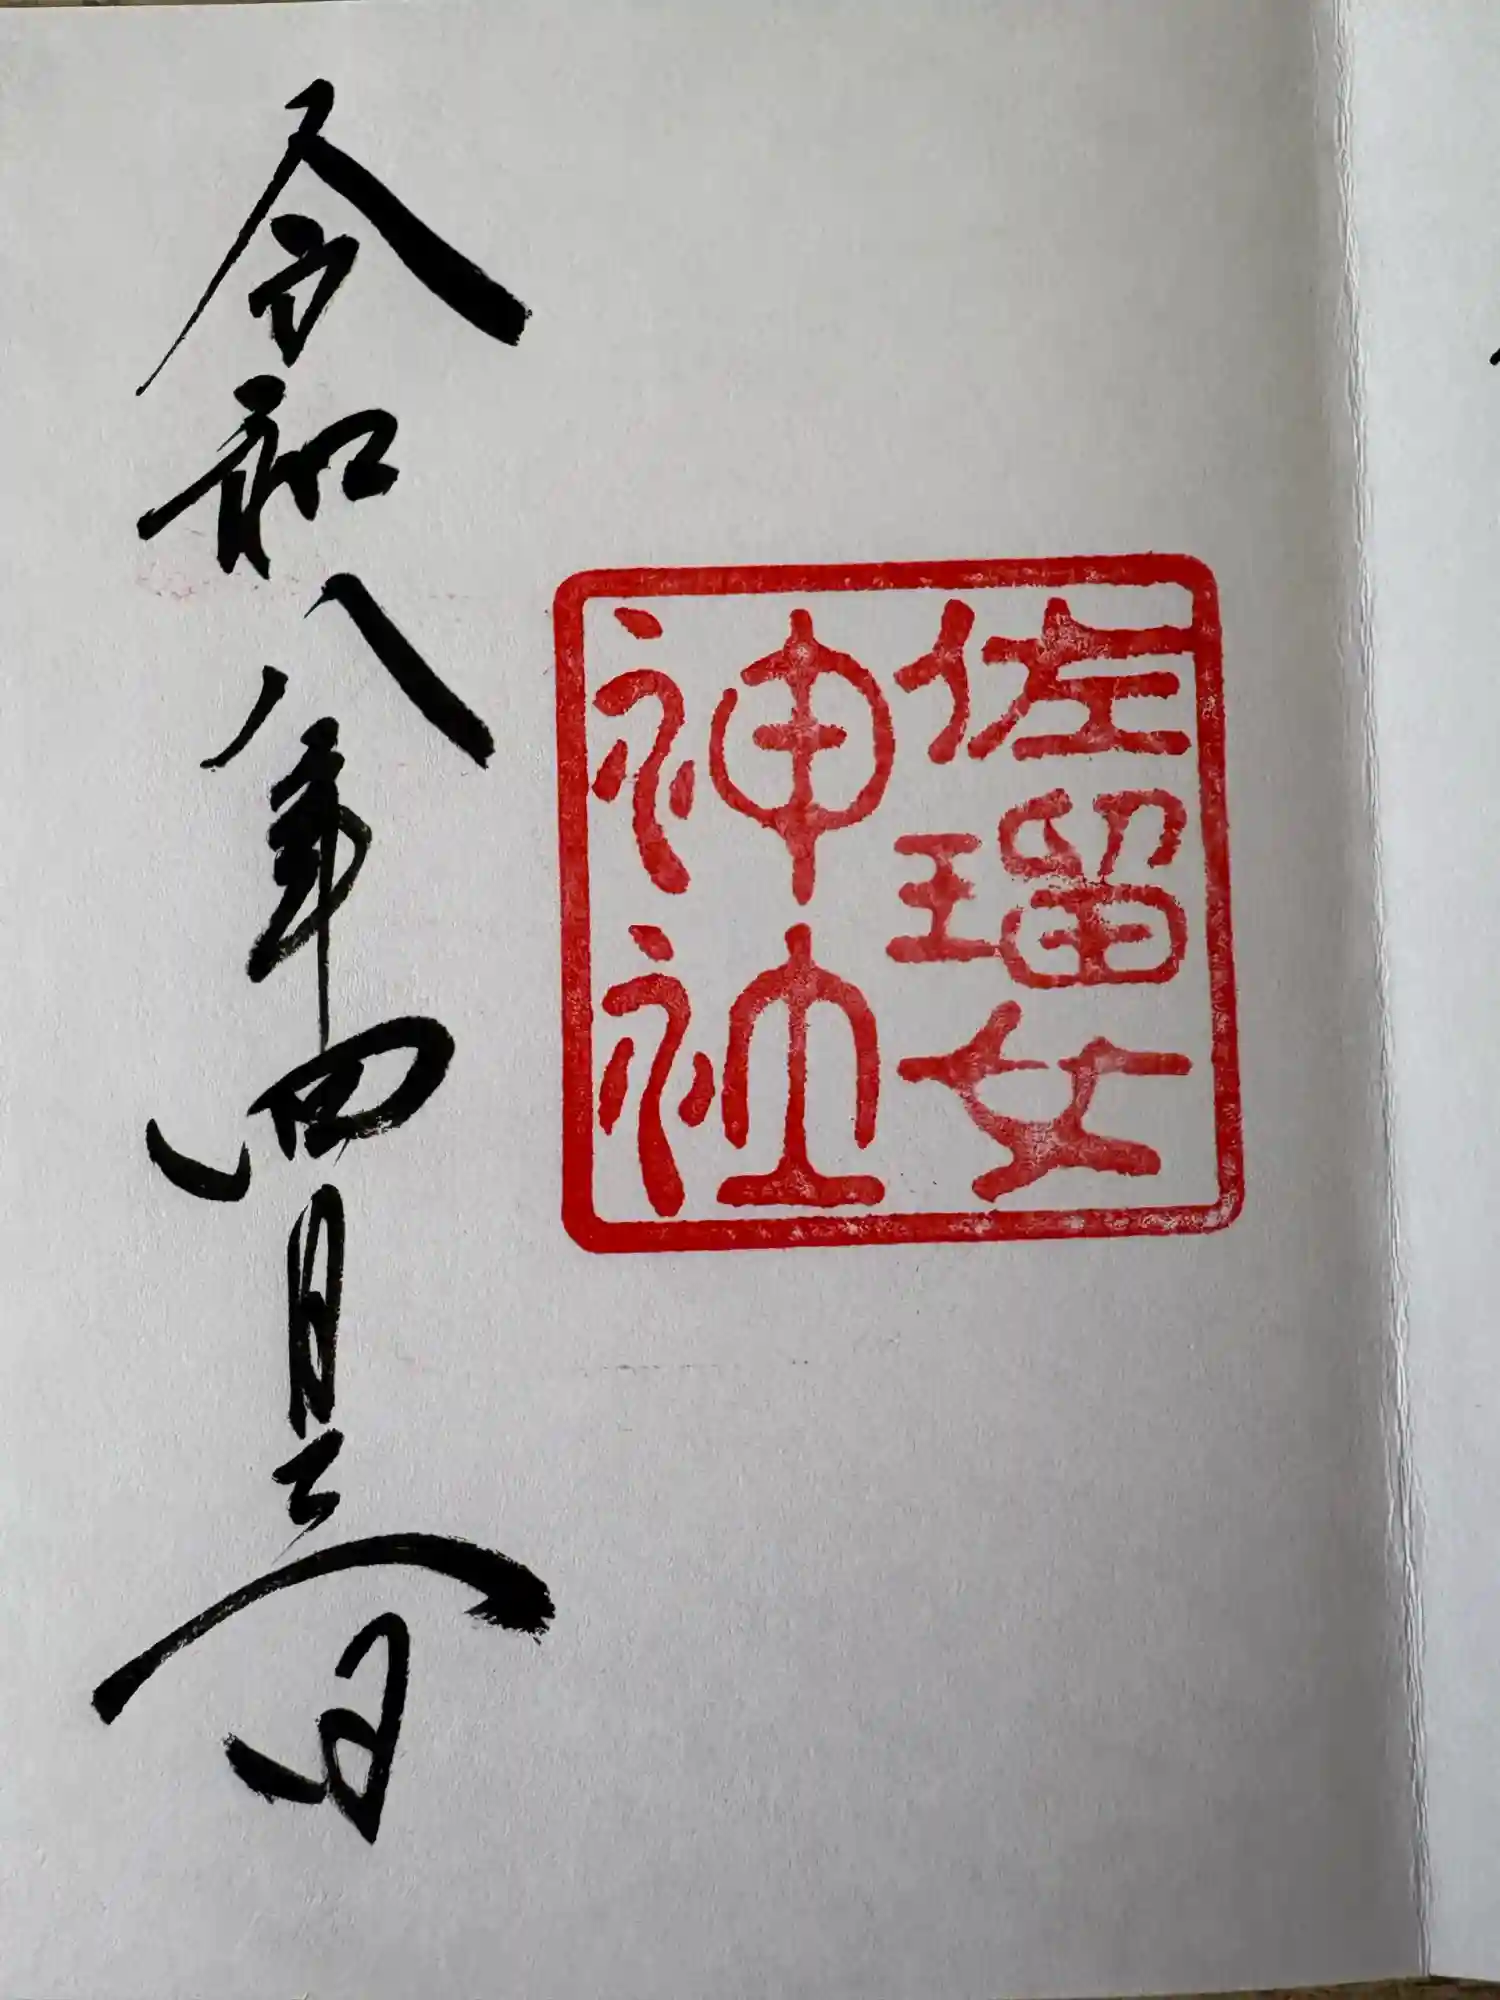 佐瑠女
神社
令和八年四月三日